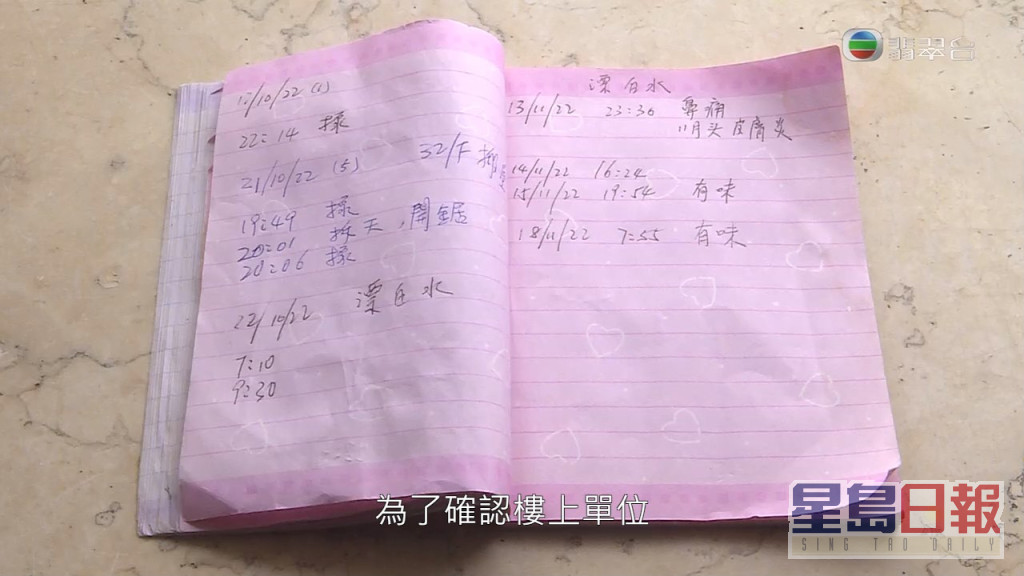 翡翠台
1?/10/22 (1)
22:14
21/10/22 (5)
32/F
19:49
20:01 拆天,開鋸
20:06
22/10/22 漂白水
7:10
9:30
漂白水
13/11/22 23:36 鼻痛
11月头皮膚炎
14/11/22 16:24
15/11/22 19:54 有味
18/11/22 7:55 有味
為了確認樓上單位
星島日報
SING TAO DAILY